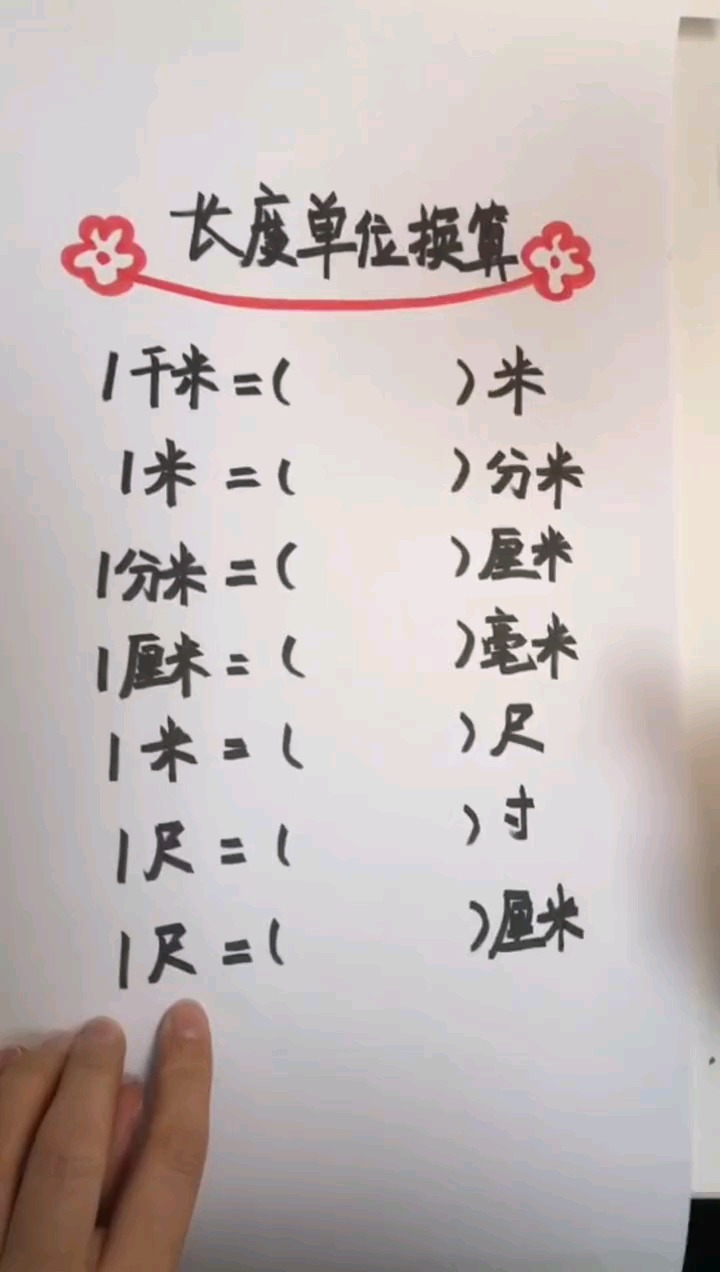 长度单位换算
1千米=( )米
1米=( )分米
1分米=( )厘米
1厘米=( )毫米
1米=( )尺
1尺=( )寸
1尺=( )厘米